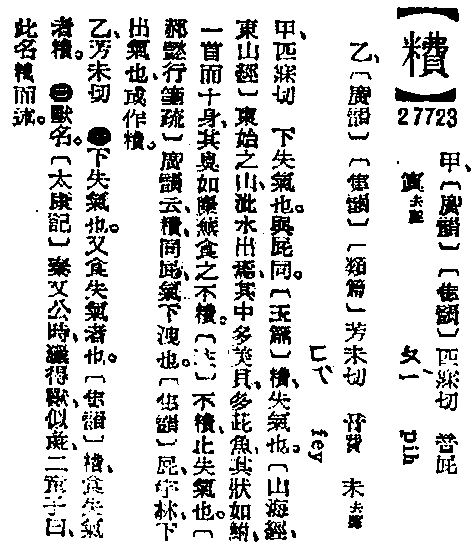 【𥻵】
27723
甲、〔廣韻〕〔集韻〕匹寐切 音屁
寘去聲 ㄆㄧ pih
乙、〔廣韻〕〔集韻〕〔類篇〕芳未切 音費 未去聲
ㄈㄟ fey
甲、匹寐切 下失氣也。與屁同。〔玉篇〕𥻵、失氣也。〔山海經、
東山經〕東始之山、泚水出焉、其中多美貝、多茈魚、其狀如鮒、
一首而十身、其臭如蘪蕪、食之不𥻵。〔注〕不𥻵、止失氣也。〔
郝懿行箋疏〕廣韻云、𥻵、同屁、氣下洩也。〔集韻〕屁、字林、下
出氣也、或作𥻵。
乙、芳未切 ㊀下失氣也。又食失氣者也。〔集韻〕𥻵、食失氣
者𥻵。㊁獸名。〔太康記〕秦文公時、獵得獸似彘、二童子曰、
此名𥻵而述。